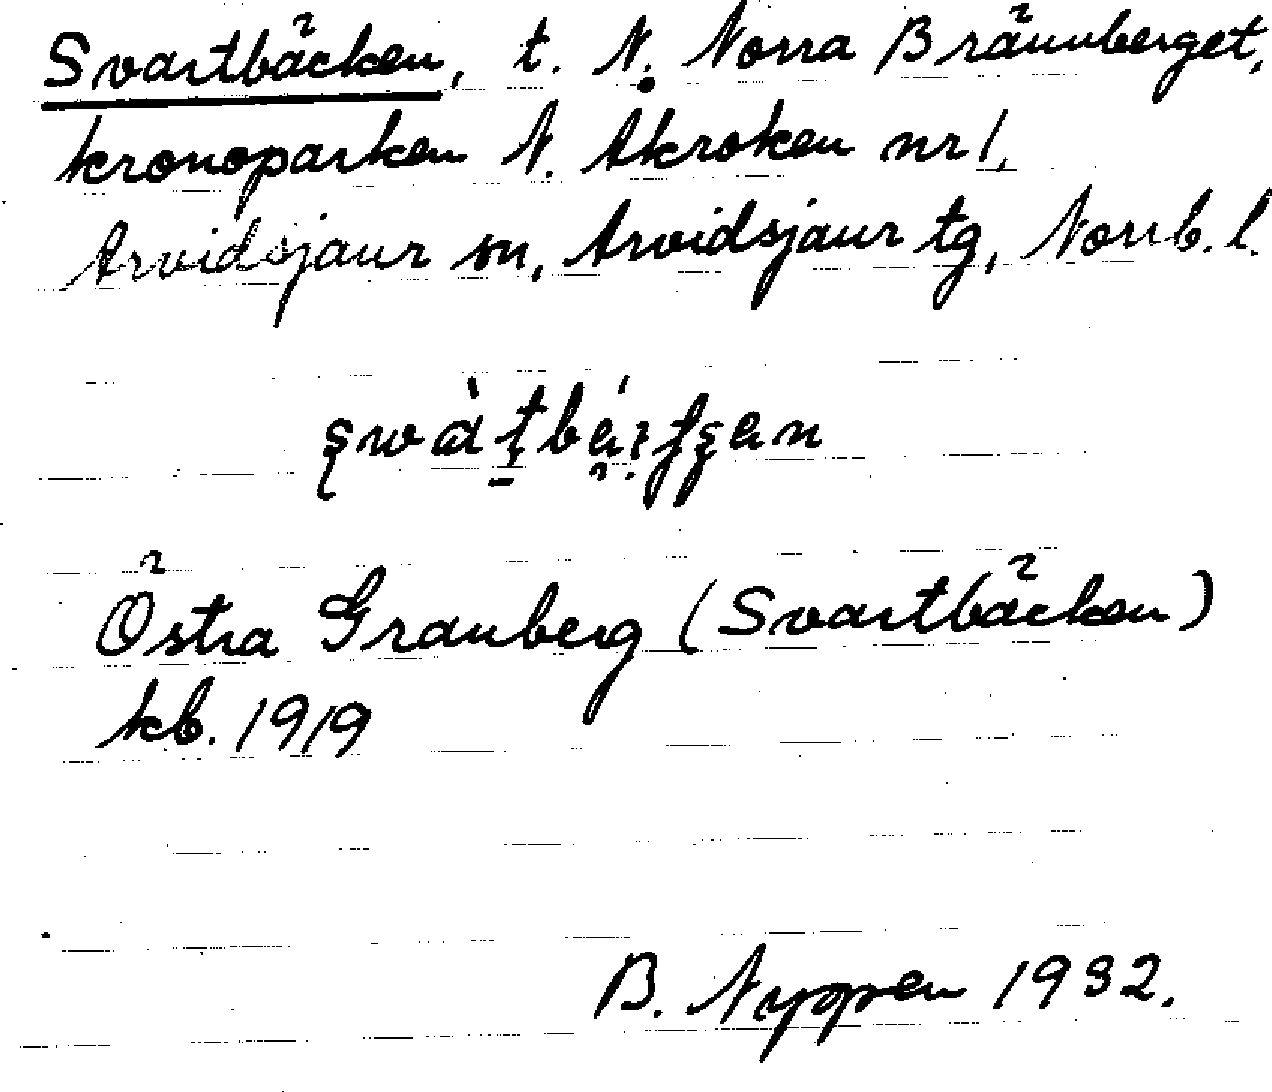 Svartbäcken, t. N. Norra Brännberget,
kronoparken N. Akroken nr 1,
Arvidsjaur sn, Arvidsjaur tg, Norrb. l.
Östra Granberg (Svartbäcken)
kb. 1919
B. Nyppen 1932.